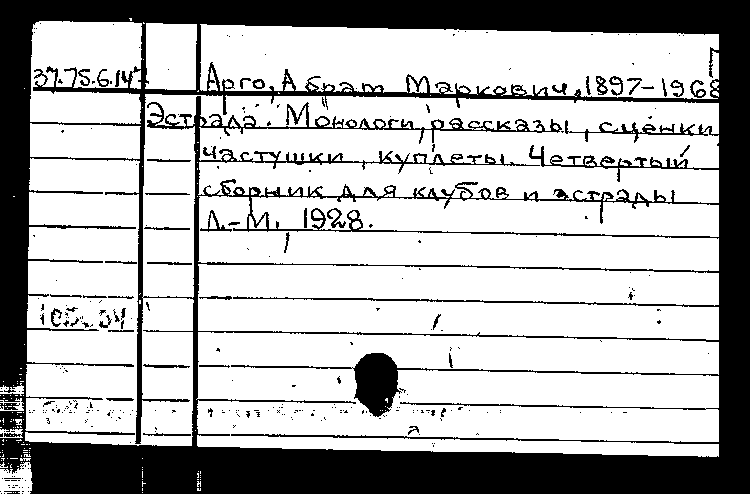 37.75.6.147. Арго, Абрам Маркович, 1897-1968
Эстрада. Монологи, рассказы, сценки
частушки, куплеты. Четвертый
сборник для клубов и эстрады
Л.-М., 1928.